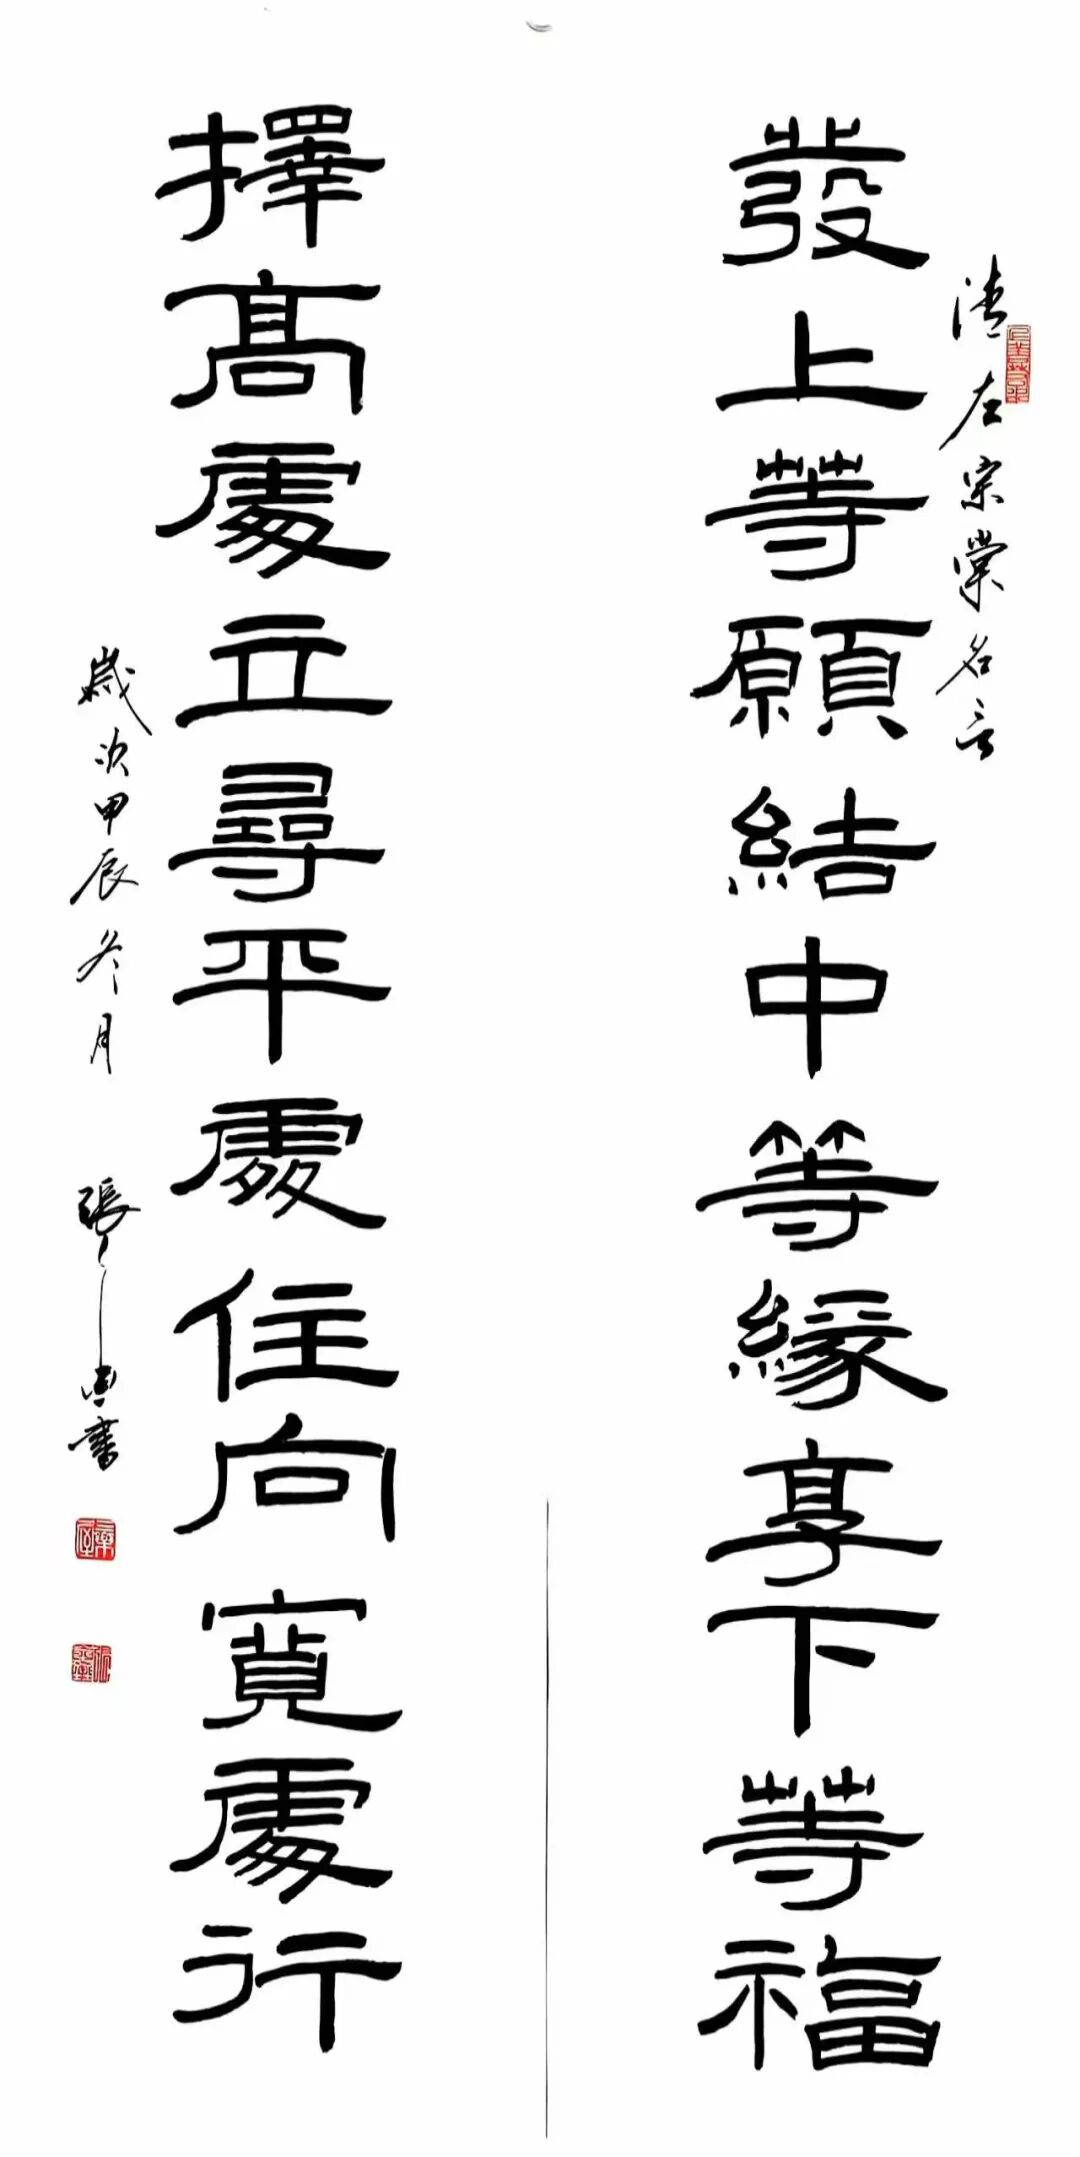 清左宗棠名言
發上等願結中等緣享下等福
擇高處立尋平處住向寬處行
歲次甲辰冬月
張
書